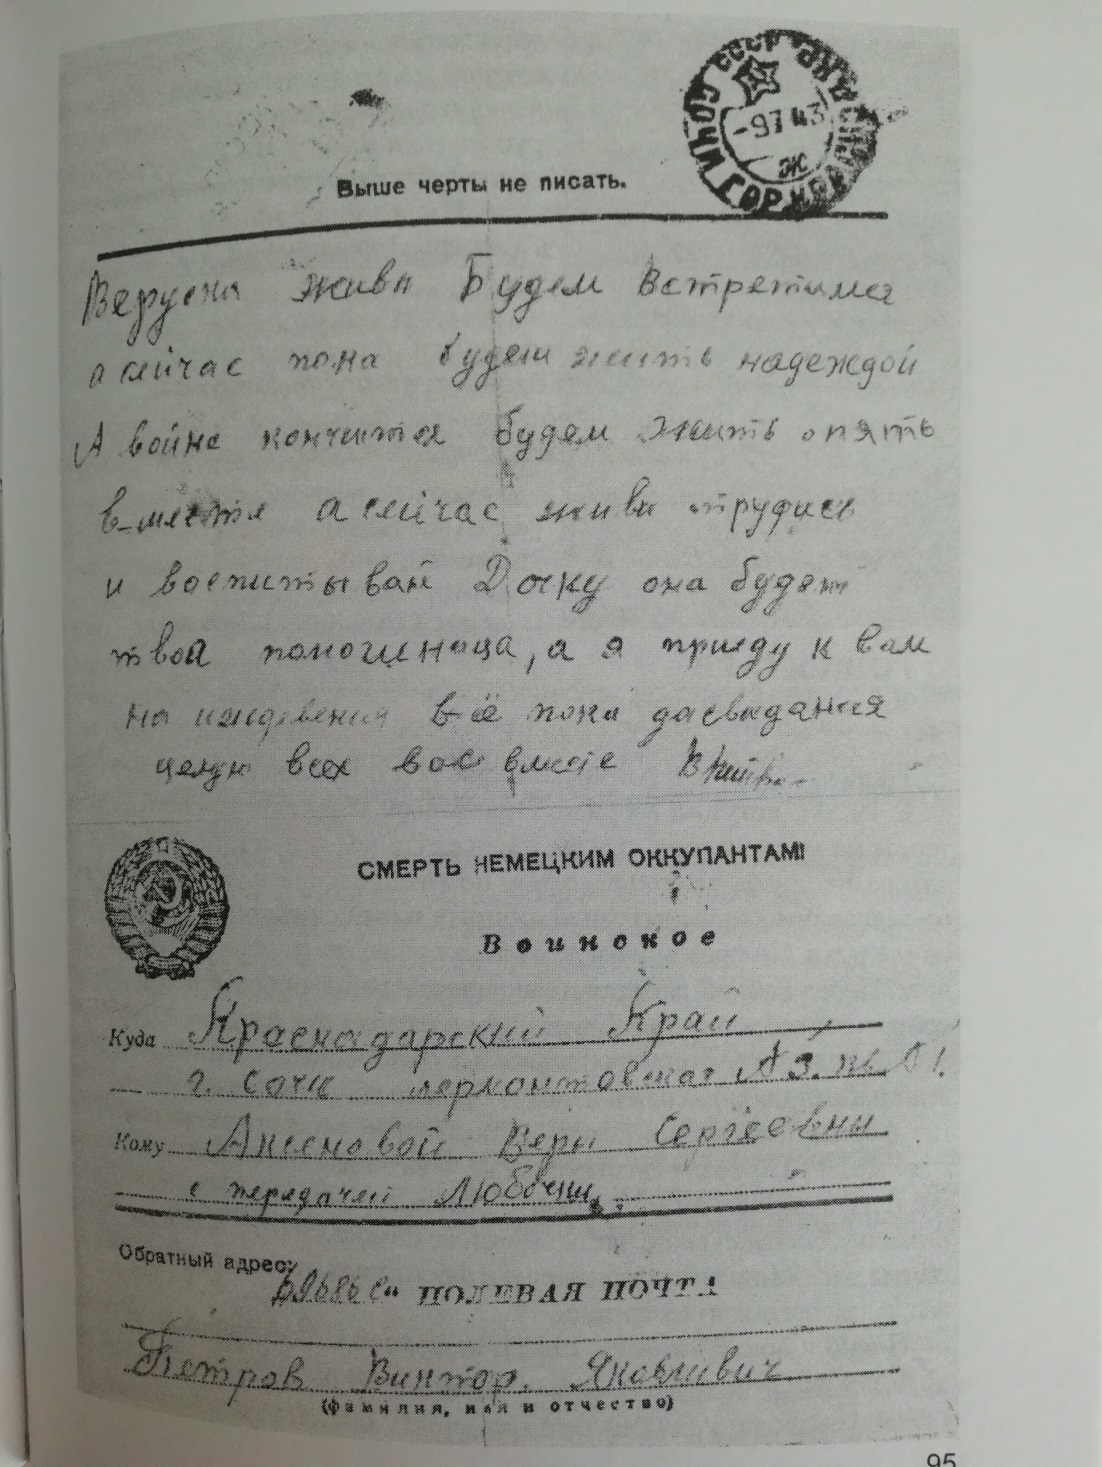 СОЧИ ГОР. КРАСНОДАРСК. СССР
-9 7 43
Ж
Выше черты не писать.
Веруска живи Будем встретимся
а сийчас пока будем жить надеждой
А война кончится будем жить опять
вместе а сийчас живи трудись
и воспитывай Дочку она будет
твоя помошница, а я приеду к вам
на иждевения всё пока досвидания
целую всех вас вместе Виктор
СМЕРТЬ НЕМЕЦКИМ ОККУПАНТАМ!
Воинское
Куда Краснадарский Край
г. Сочи лермонтовская № 3. кв. №1.
Кому Аксеновой Веры Сергеевны
с передачей Любочки
Обратный адрес:
ПОЛЕВАЯ ПОЧТА
Петров Виктор. Яковливич
(фамилия, имя и отчество)
95